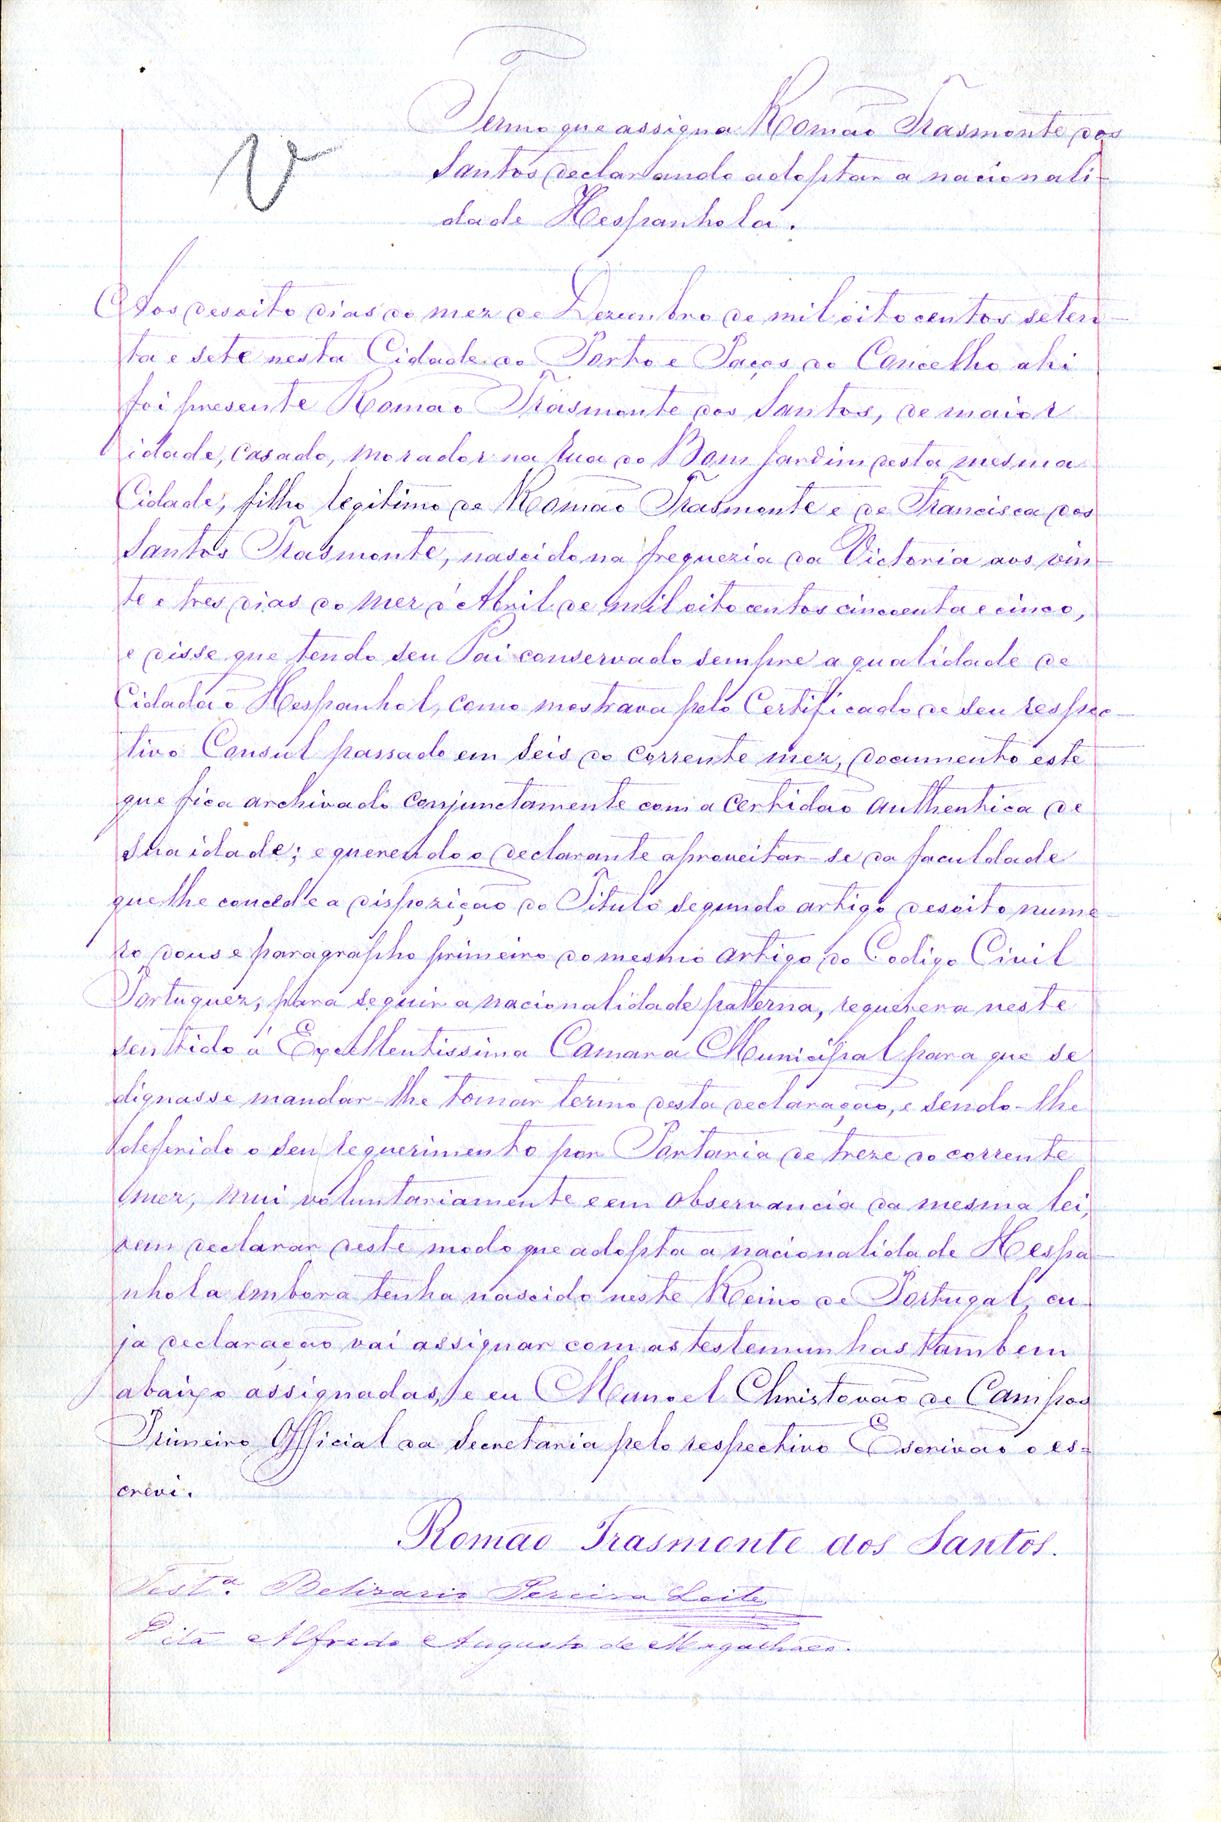 V
Termo que assigna Romão Trasmonte dos
Santos declarando adoptar a nacionali-
dade Hespanhola.
Aos desoito dias do mez de Dezembro de mil oito centos seten-
ta e sete nesta Cidade do Porto e Paços do Concelho ahi
foi presente Romão Trasmonte dos Santos, de maior
idade, casado, morador na rua do Bom jardim desta mesma
Cidade, filho legitimo de Romão Trasmonte e de Francisca dos
Santos Trasmonte, nascido na freguezia da Victoria aos vin-
te e tres dias do mez d'Abril de mil oito centos cincoenta e cinco,
e disse que tendo seu Pai conservado sempre a qualidade de
Cidadão Hespanhol, como mostrava pelo Certificado de seu respec-
tivo Consul passado em seis do corrente mez, documento este
que fica archivado conjunctamente com a certidão authentica de
sua idade; e querendo o declarante aproveitar-se da faculdade
que lhe concede a dispozição do Titulo segundo artigo desoito nume-
ro dous e paragrapho primeiro do mesmo artigo do Codigo Civil
Portuguez, para seguir a nacionalidade paterna, requerera neste
sentido á Excellentissima Camara Municipal para que se
dignasse mandar-lhe tomar termo desta declaração, e sendo-lhe
deferido o seu requerimento por Portaria de treze do corrente
mez, mui voluntariamente e em observancia da mesma lei,
vem declarar deste modo que adopta a nacionalidade Hespa-
nhola embora tenha nascido neste Reino de Portugal, cu-
ja declaração vai assignar com as testemunhas tambem
abaixo assignadas, e eu Manoel Christovão de Campos
Primeiro Official da Secretaria pelo respectivo Escrivão o es-
crevi.
Romão Trasmonte dos Santos.
Test.ª Belizario Pereira Leite
Dita Alfredo Augusto de Magalhães.